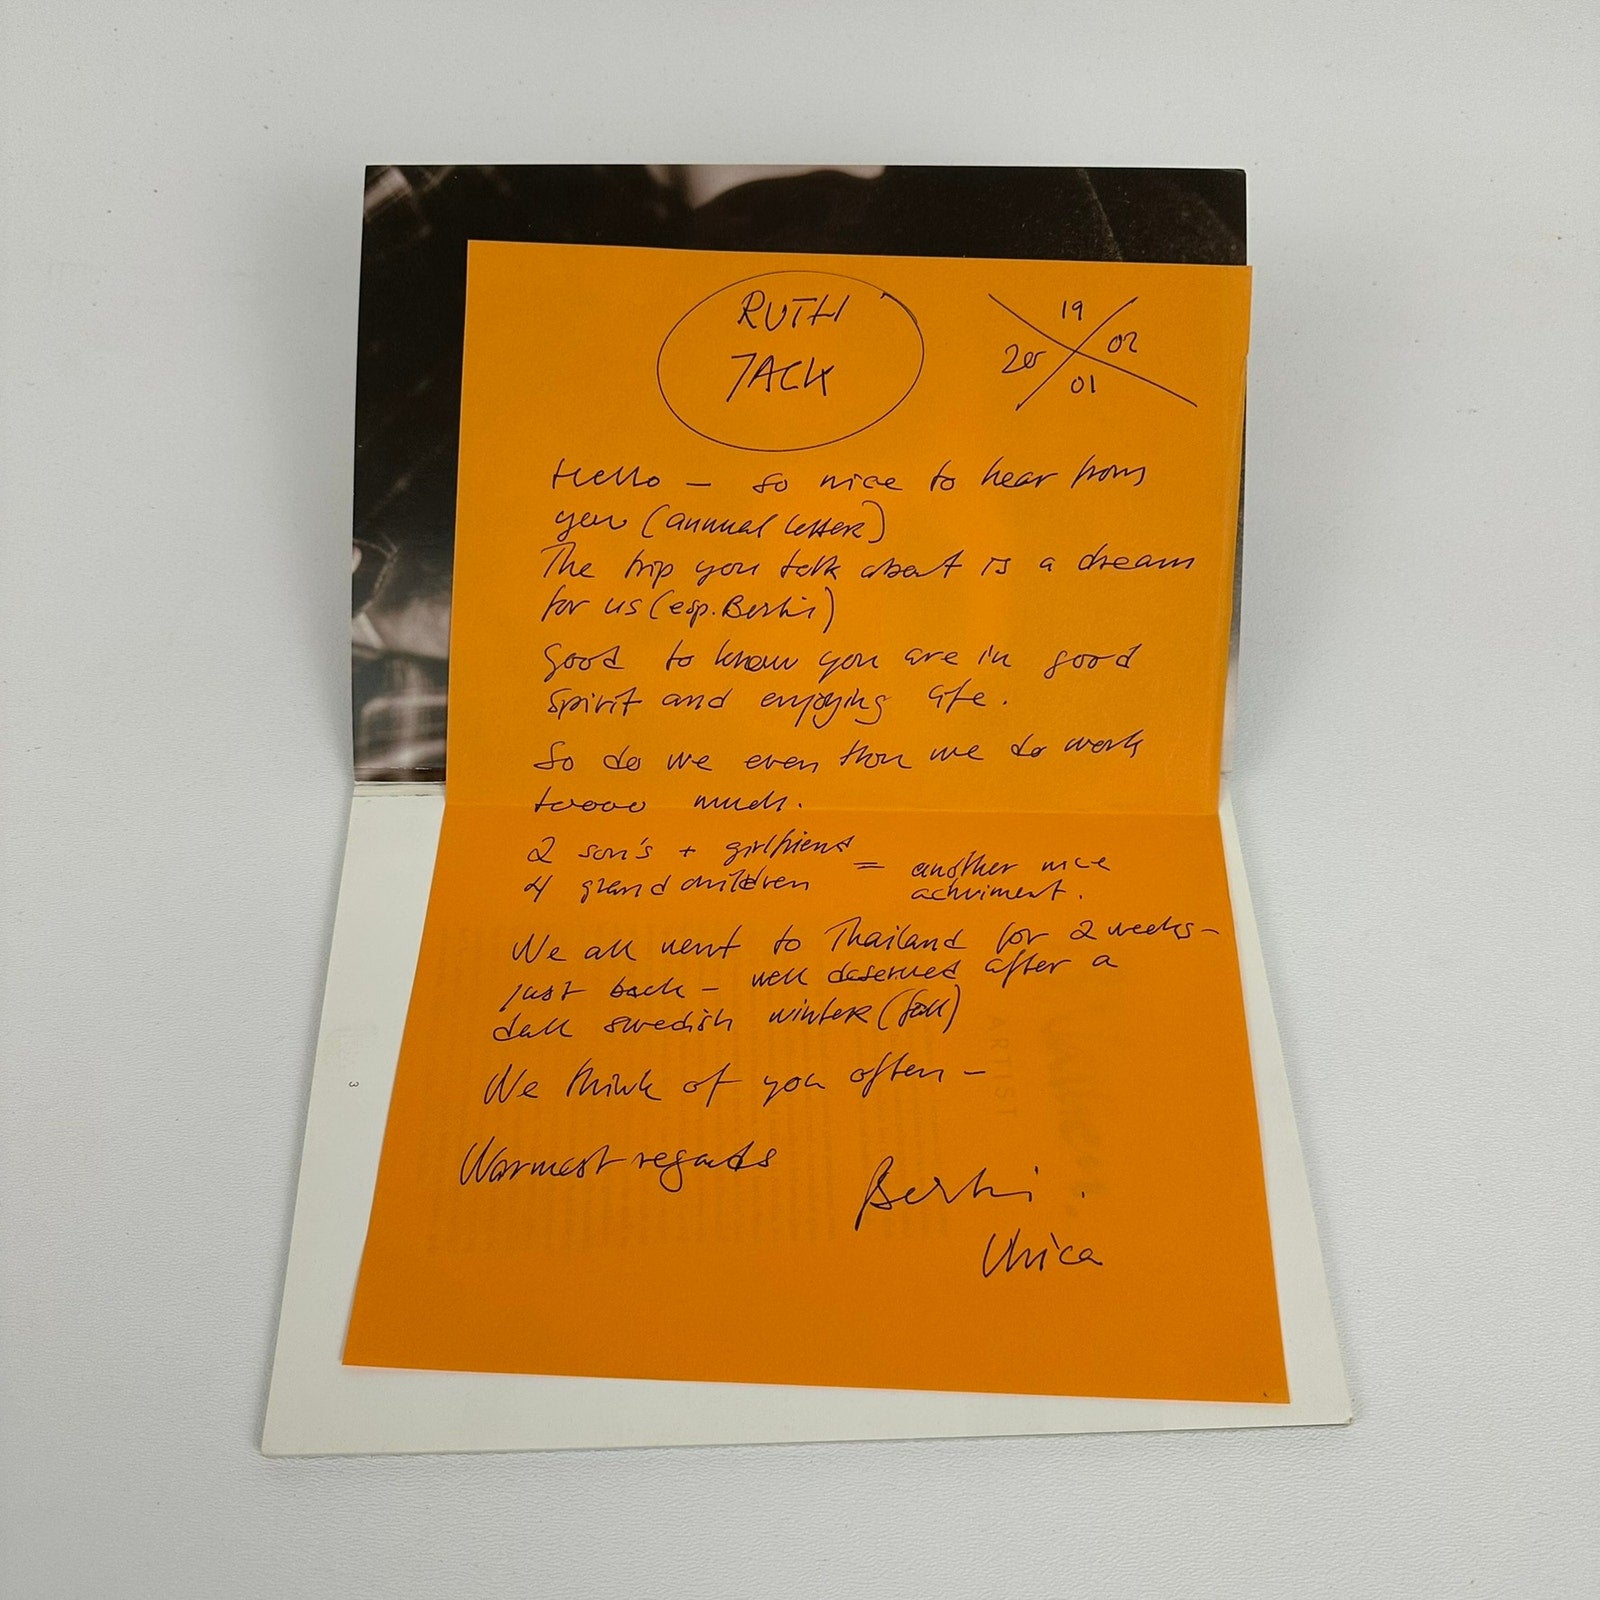 RUTH
JACK
19
20 02
01
Hello – so nice to hear from
you (annual letter)
The trip you talk about is a dream
for us (esp. Berlin)
Good to know you are in good
spirit and enjoying life.
So do we even thou we do work
toooo much.
2 son's + girlfriend
4 grandchildren = another nice
achviment.
We all went to Thailand for 2 weeks –
just back – well deserved after a
dull swedish winter (fall)
We think of you often –
Warmest regards
3
ARTIST